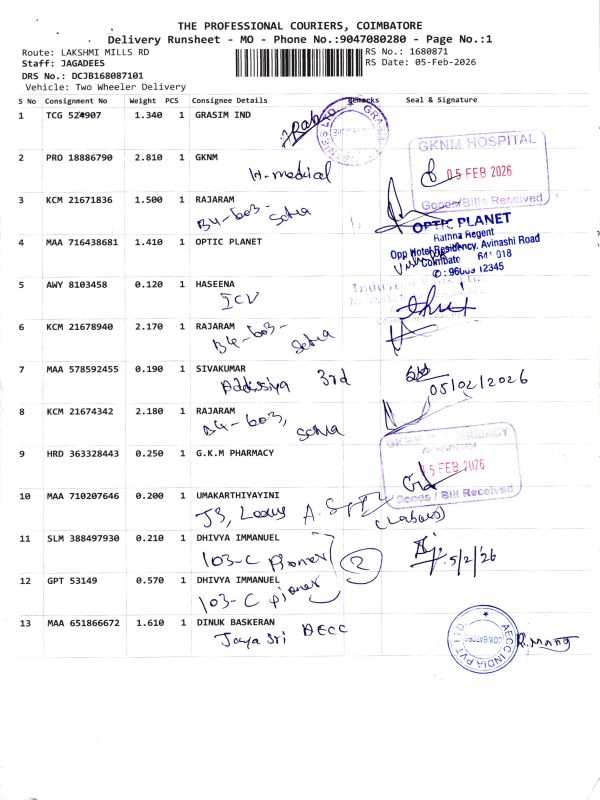 THE PROFESSIONAL COURIERS, COIMBATORE
Delivery Runsheet - MO - Phone No.:9047080280 - Page No.:1
Route: LAKSHMI MILLS RD
RS No.: 1680871
Staff: JAGADEES
RS Date: 05-Feb-2026
DRS No.: DCJB168087101
Vehicle: Two Wheeler Delivery
S No Consignment No Weight PCS Consignee Details Remarks Seal & Signature
1 TCG 524907 1.340 1 GRASIM IND
GKNM HOSPITAL
2 PRO 18886790 2.810 1 GKNM
05 FEB 2026
H-medical
Goods/Bills Received
3 KCM 21671836 1.500 1 RAJARAM
B4-603-
OPTIC PLANET
Rathna Regent
4 MAA 716438681 1.410 1 OPTIC PLANET
Opp Hotel Residency, Avinashi Road
Coimbatore 641 018
5 AWY 8103458 0.120 1 HASEENA
ICV
6 KCM 21678940 2.170 1 RAJARAM
B4-603-
7 MAA 578592455 0.190 1 SIVAKUMAR
3rd
05/02/2026
8 KCM 21674342 2.180 1 RAJARAM
B4-603,
9 HRD 363328443 0.250 1 G.K.M PHARMACY
5 FEB 2026
Goods / Bill Received
10 MAA 710207646 0.200 1 UMAKARTHIYAYINI
J3,
11 SLM 388497930 0.210 1 DHIVYA IMMANUEL
103-C pioner
2
5/2/26
12 GPT 53149 0.570 1 DHIVYA IMMANUEL
103-C pioner
13 MAA 651866672 1.610 1 DINUK BASKERAN
Jaya Sri AECC
AECC INDIA PVT LTD
COIMBATORE